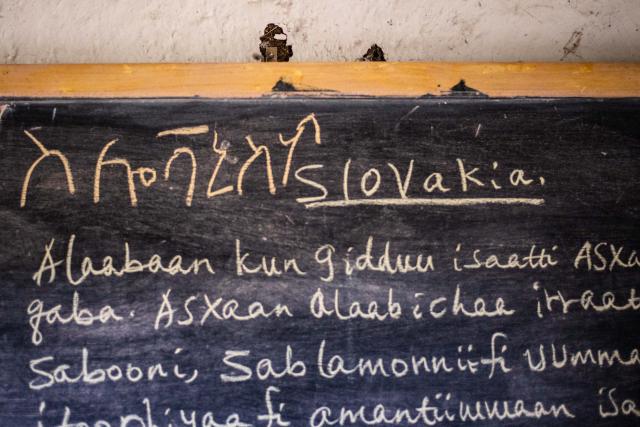 Slovakia.
Alaabaan kun gidduu isaatti ASxa
gaba. ASxaan alaabichaa irraat
Sabooni, Sablamonniifi uumma
itoophiyaa fi amantiiwwaan isa